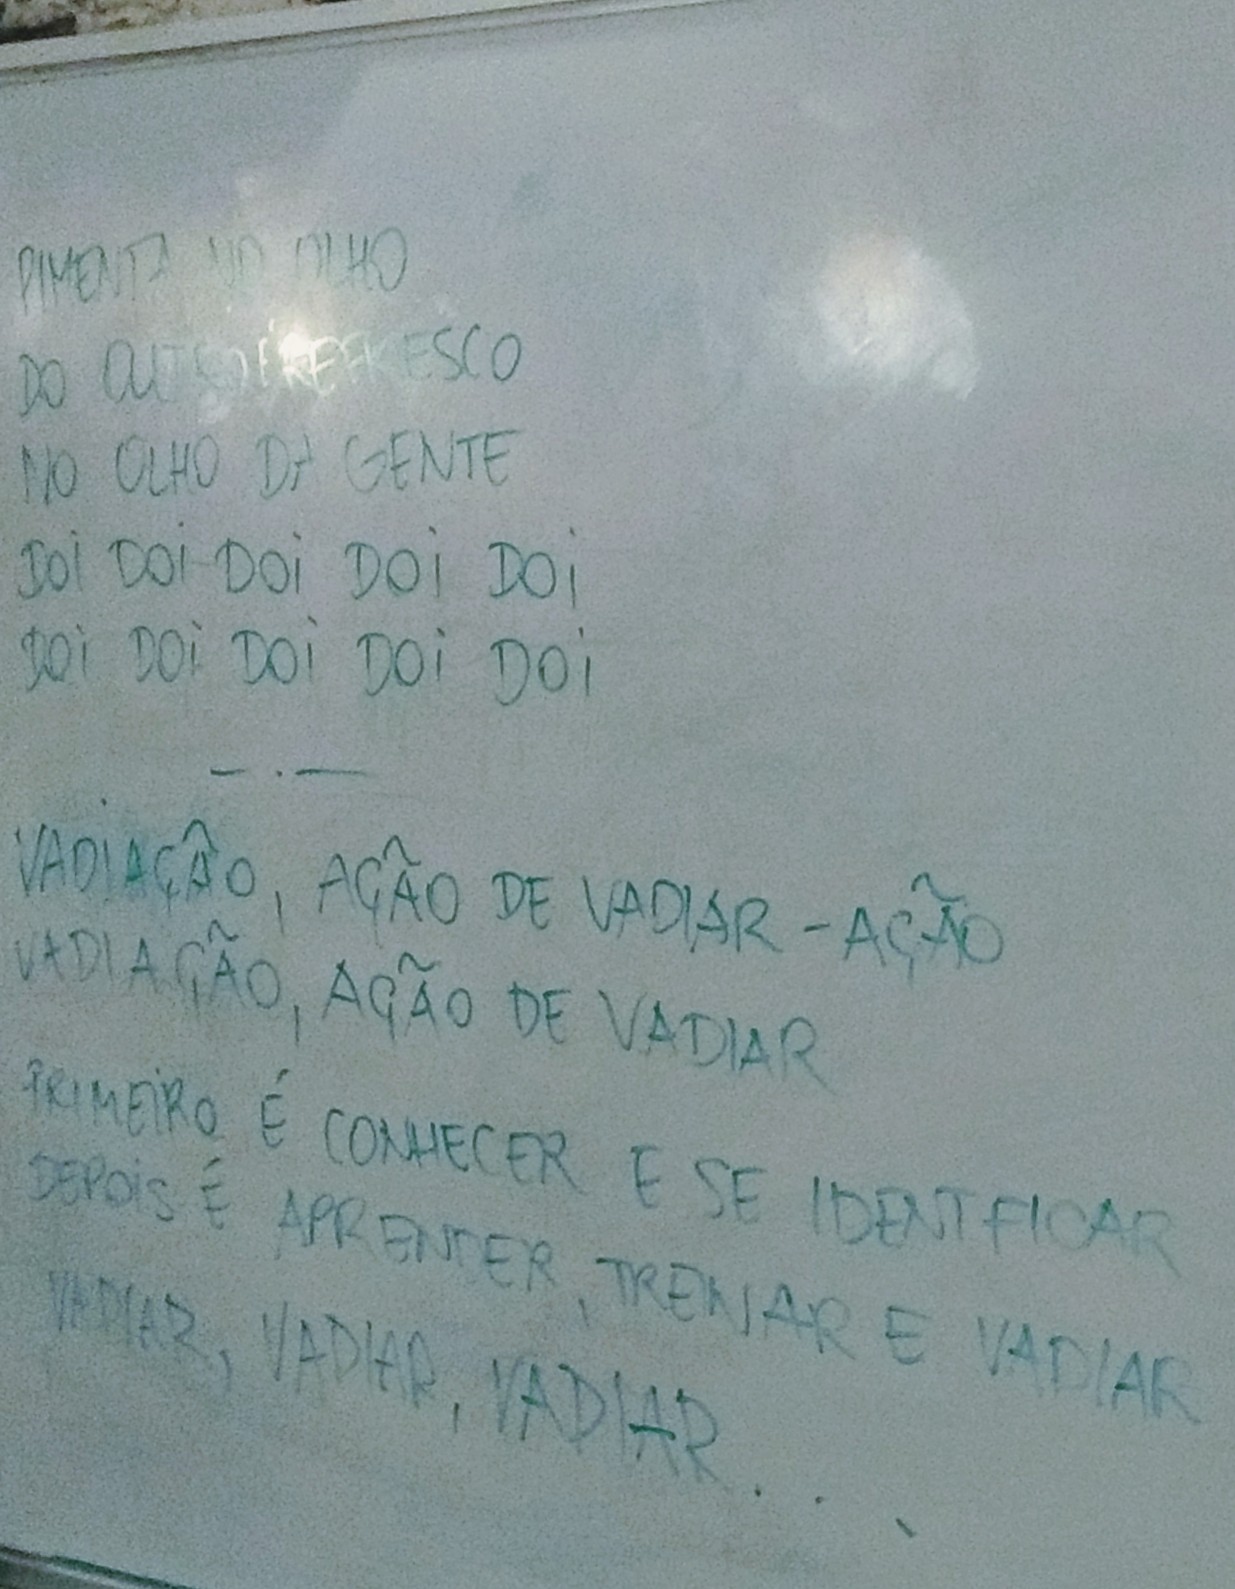 PIMENTA NO OLHO
DO OUTRO É REFRESCO
NO OLHO DA GENTE
DOI DOI DOI DOI DOI
DOI DOI DOI DOI DOI
— . —
VADIAÇÃO, AÇÃO DE VADIAR - AÇÃO
VADIAÇÃO, AÇÃO DE VADIAR
PRIMEIRO É CONHECER E SE IDENTFICAR
DEPOIS É APRENDER, TREINAR E VADIAR
VADIAR, VADIAR, VADIAR...